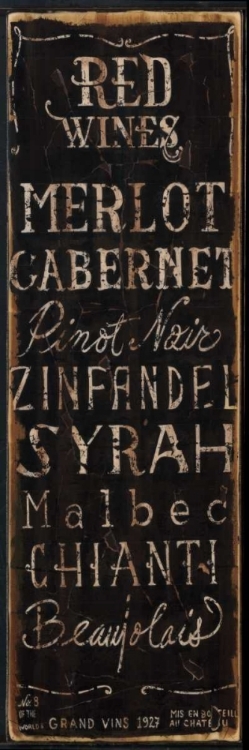 RED
WINES
MERLOT
CABERNET
Pinot Noir
ZINFANDEL
SYRAH
Malbec
CHIANTI
Beaujolais
No 9
OF THE
WORLD'S
GRAND VINS 1927
MIS EN BOTEILL
AU CHATEAU